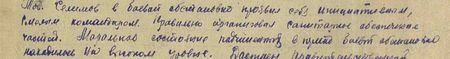 Тов. Семенов в боевой обстановке проявил себя инициативным,
смелым командиром. Правильно организовал санитарное обеспечение
частей. Моральное состояние подчиненных в период боевой обстановки
находилось на высоком уровне. Достоин правительственной